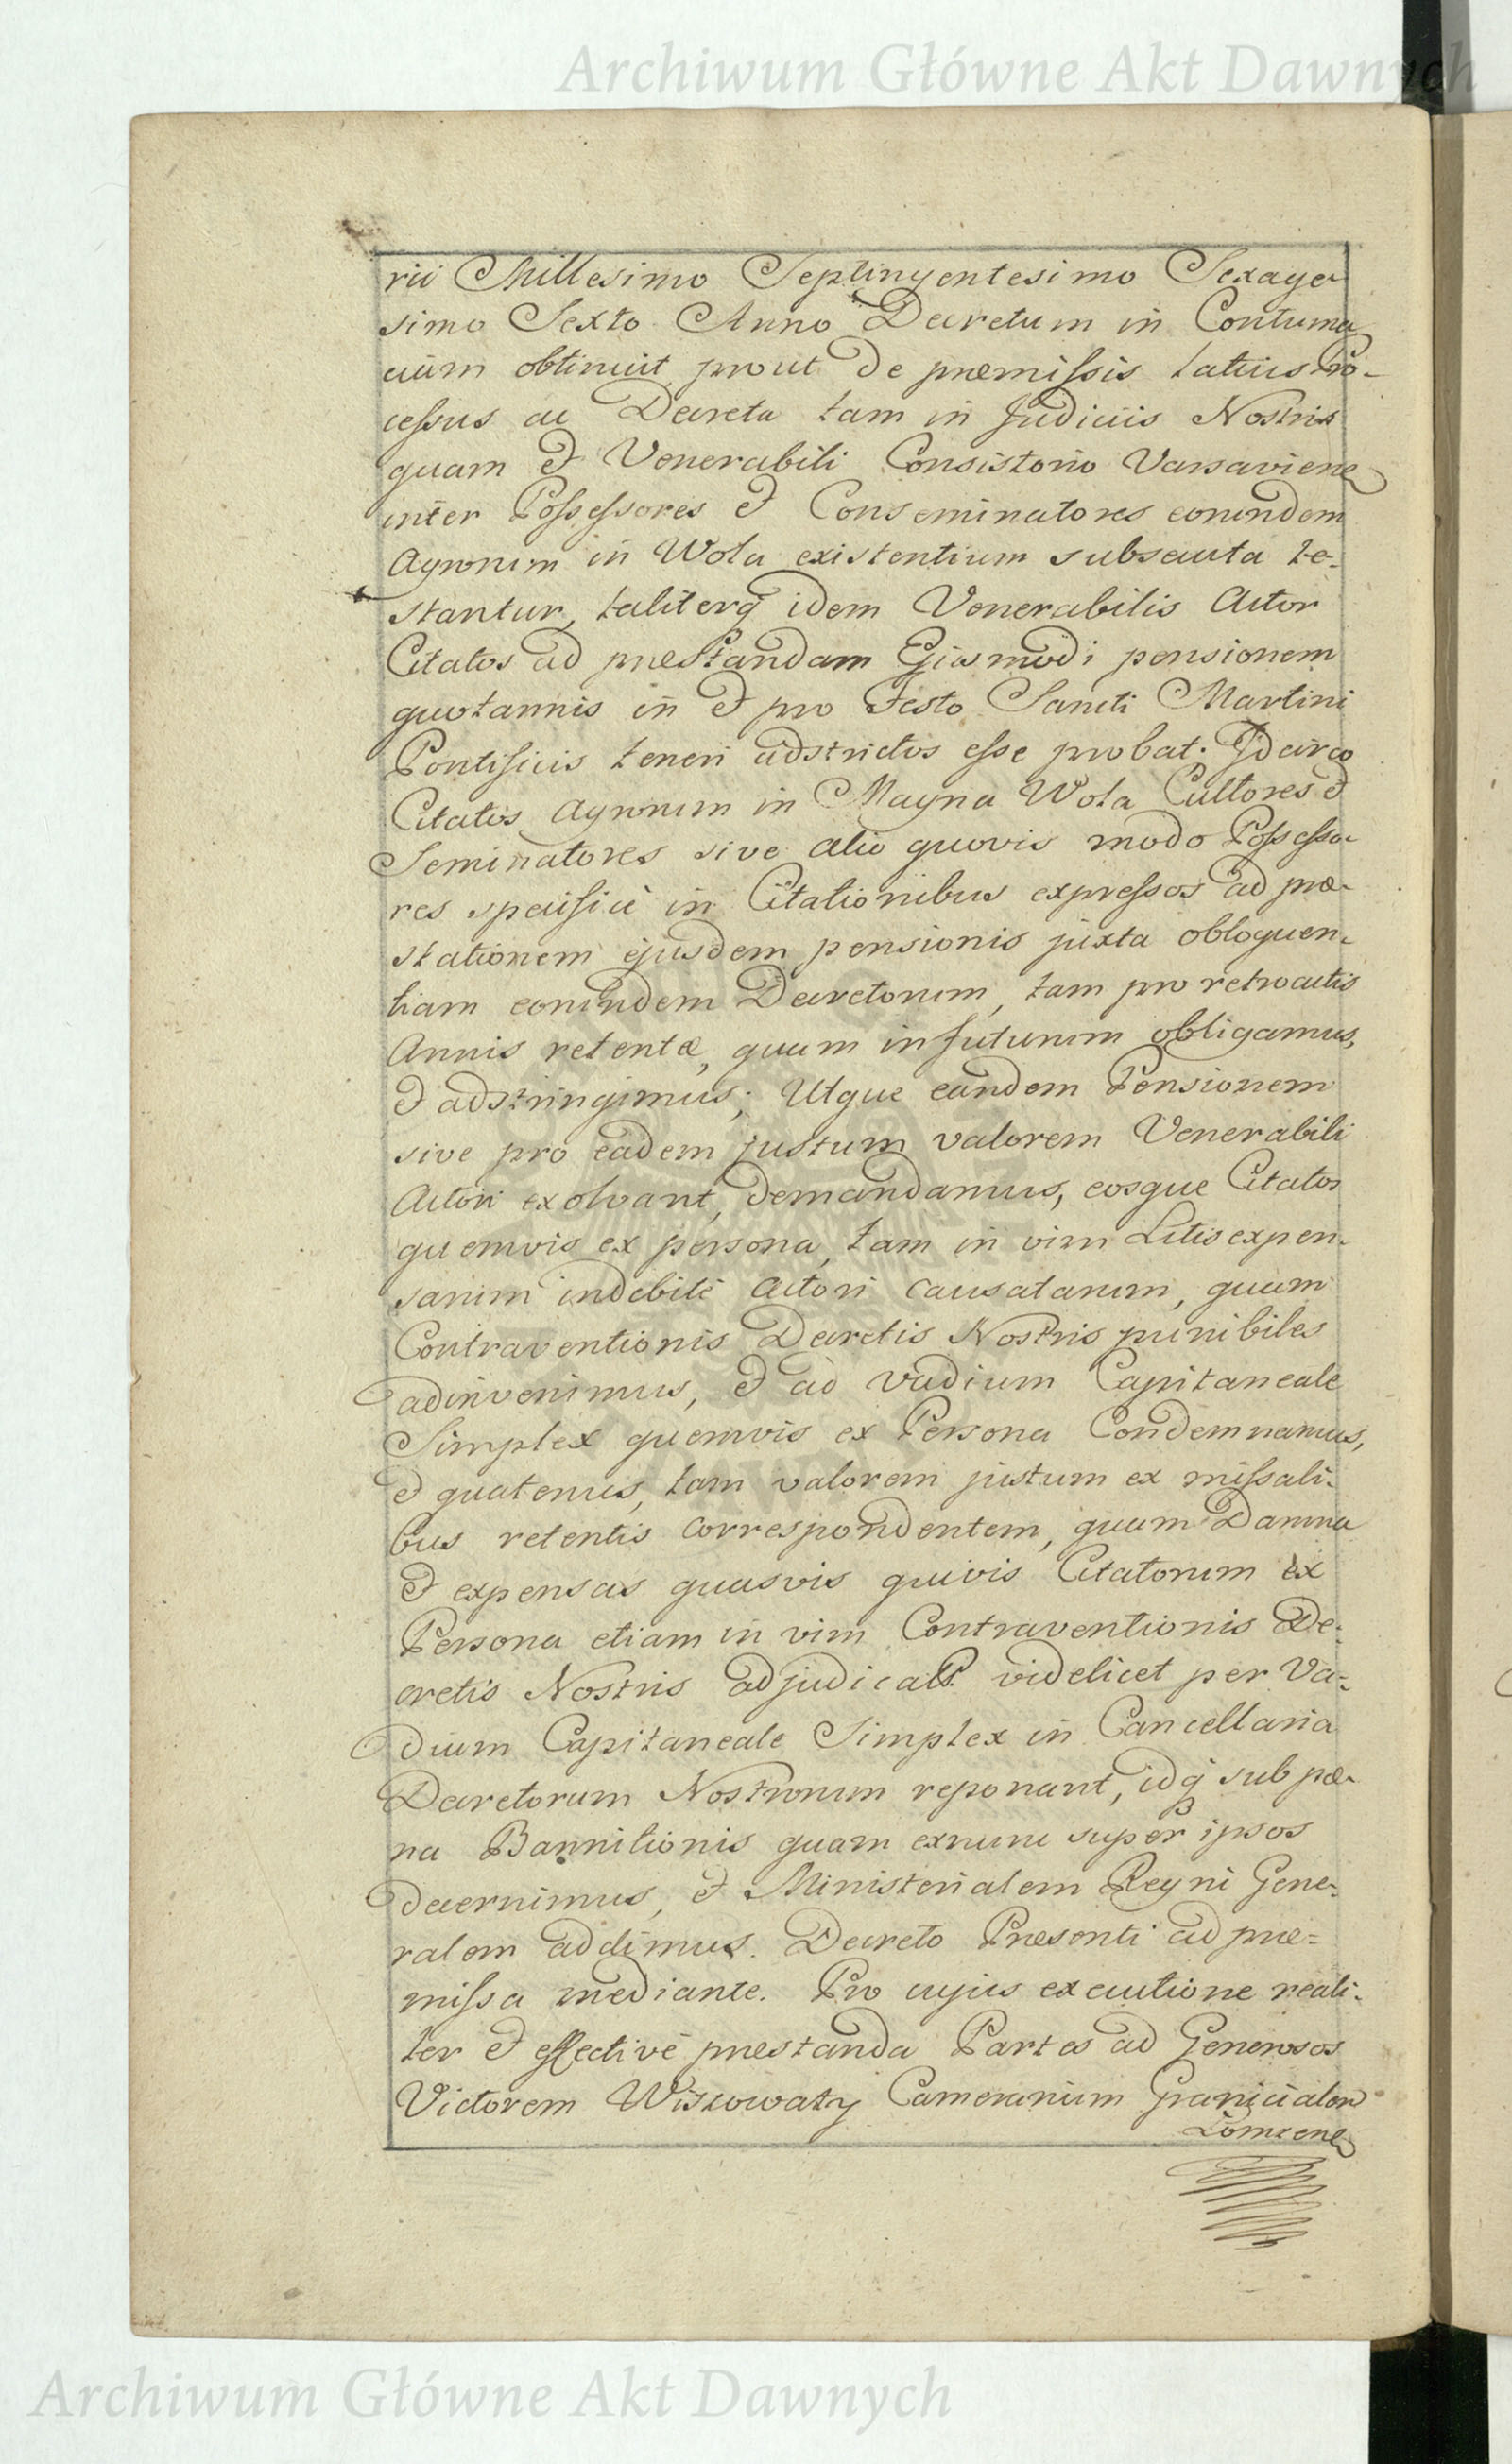 Archiwum Główne Akt Dawnych
rii Millesimo Septingentesimo Sexage
simo Sexto Anno Decretum in Contuma
ciam obtinuit, prout de præmissis latius Pro-
cessus ac Decreta tam in Judiciis Nostris
quam et Venerabili Consistorio Varsaviene
inter Possessores et Conseminatores eorundem
Agrorum in Wola existentium subsecuta te-
stantur, taliterq idem Venerabilis Actor
Citatos ad præstandam Ejusmodi pensionem
quotannis in et pro Festo Sancti Martini
Pontificis teneri adstrictos esse probat. Idcirco
Citatos Agrorum in Magna Wola Cultores et
Seminatores sive alio quovis modo Possesso-
res specificè in Citationibus expressos ad præ-
stationem ejusdem pensionis juxta obloquen-
tiam eorundem Decretorum, tam pro retroactis
Annis retentæ, quam in futurum obligamus,
et adstringimus; Utque eandem Pensionem
sive pro eadem justum valorem Venerabili
Actori exolvant, demandamus, eosque Citatos
quemvis ex persona, tam in vim Litis expen-
sarum indebitè Actori causatarum, quam
Contraventionis Decretis Nostris punibiles
adinvenimus, et ad Vadium Capitaneale
Simplex quemvis ex Persona Condemnamus,
et quatenus, tam valorem justum ex missali-
bus retentis correspondentem, quam Damna
et expensas quasvis quivis Citatorum ex
Persona etiam in vim Contraventionis De-
cretis Nostris adjudicat videlicet per Va-
dium Capitaneale Simplex in Cancellaria
Decretorum Nostrorum reponant, idq sub pæ-
na Bannitionis quam exnunc super ipsos
decernimus, et Ministerialem Regni Gene-
ralem addimus. Decreto Præsenti ad præ-
missa mediante. Pro cujus executione reali-
ter et effectivè præstanda Partes ad Generosos
Victorem Wiszowaty Camerarium Granicialem
Łomzene
Archiwum Główne Akt Dawnych